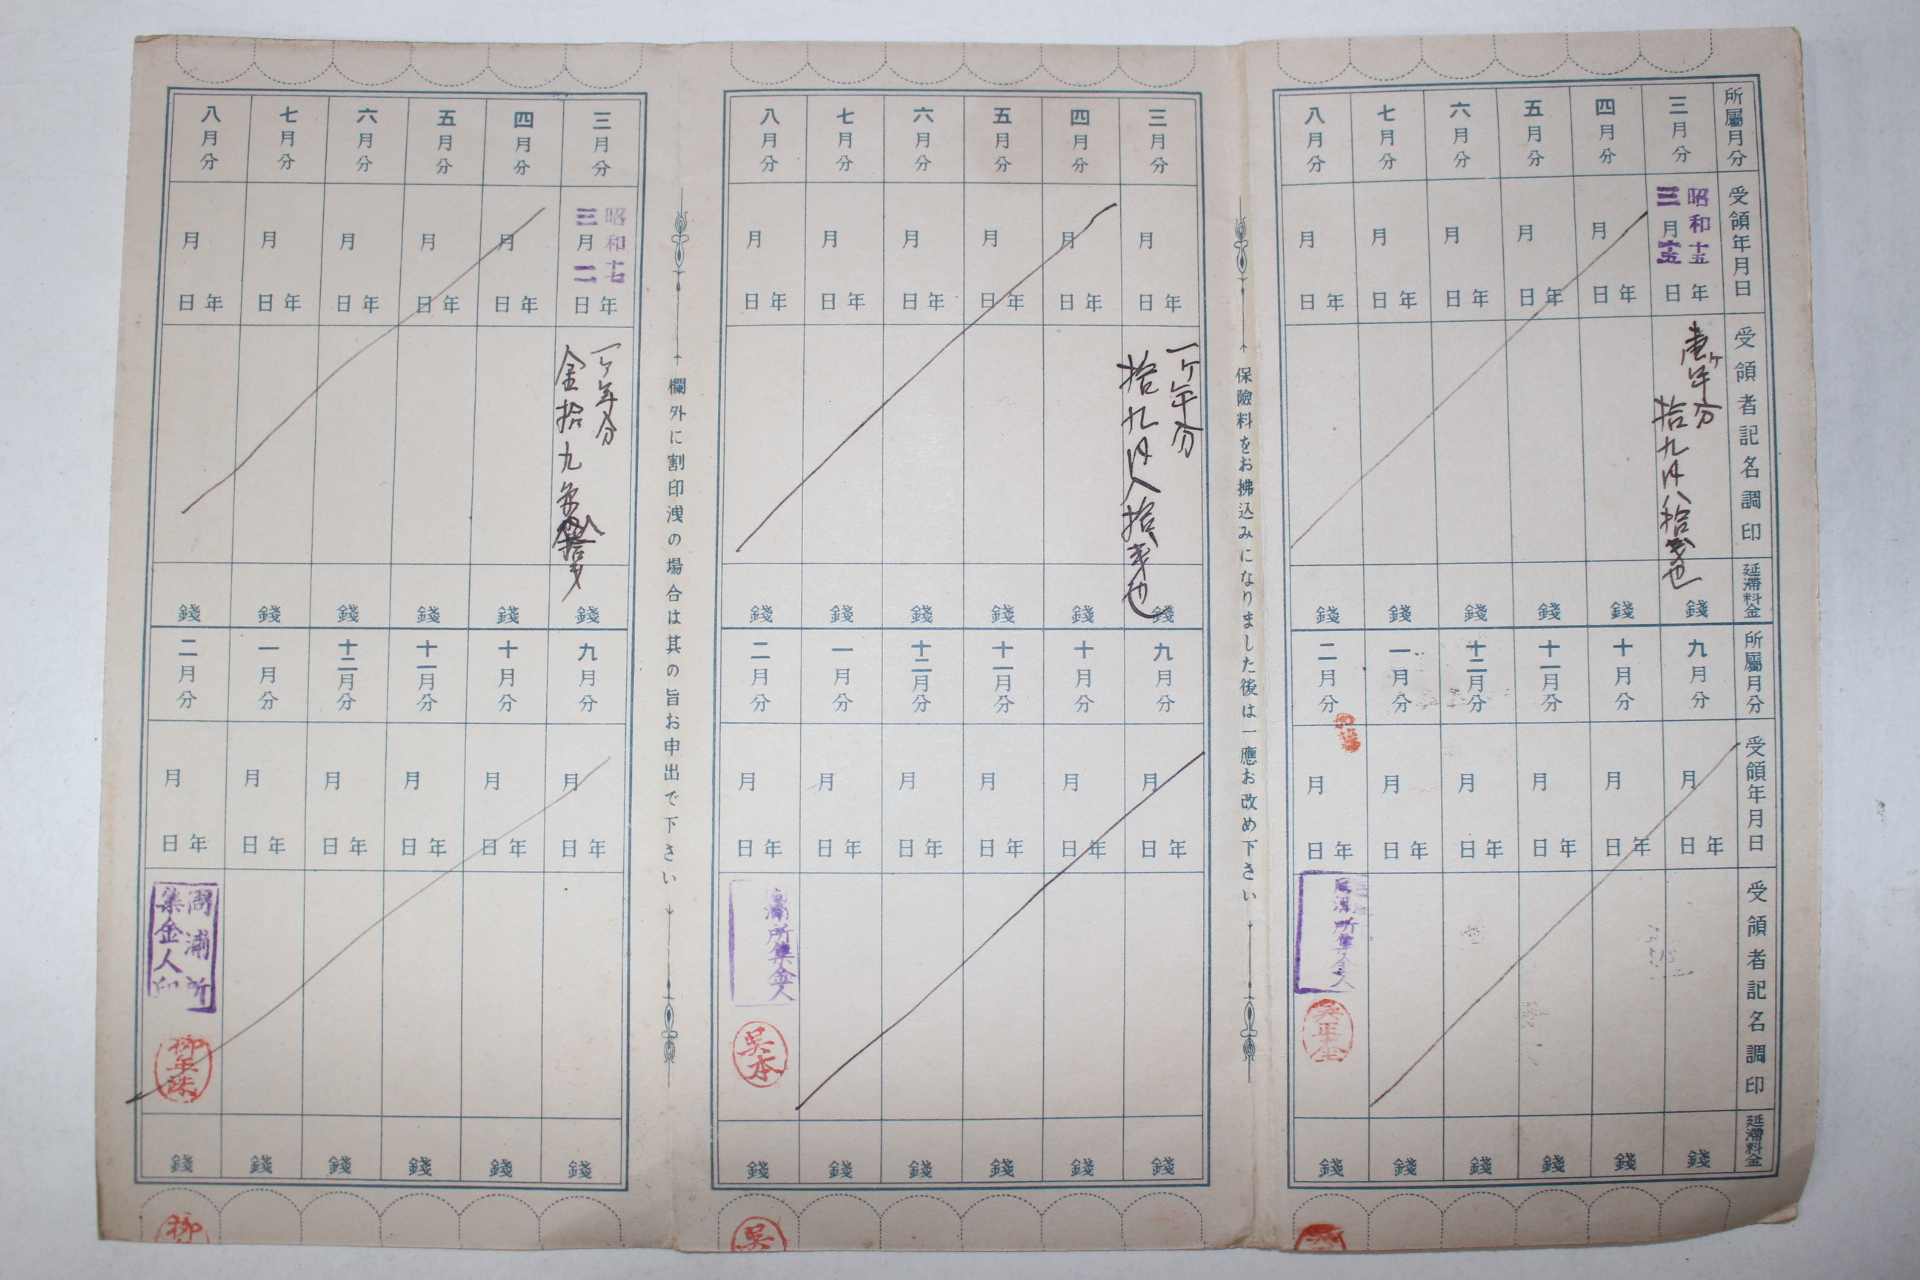 所屬月分
三月分
四月分
五月分
六月分
七月分
八月分
受領年月日
昭和十五年三月十五日
年月日
年月日
年月日
年月日
年月日
受領者記名調印
壹ヶ年分
拾九円八拾銭也
延滯料金
錢
錢
錢
錢
錢
錢
所屬月分
九月分
十月分
十一月分
十二月分
一月分
二月分
受領年月日
年月日
年月日
年月日
年月日
年月日
年月日
受領者記名調印
所集金人
延滯料金
錢
錢
錢
錢
錢
錢
保險料をお拂込みになりました後は一應お改め下さい
三月分
四月分
五月分
六月分
七月分
八月分
年月日
年月日
年月日
年月日
年月日
年月日
一ヶ年分
拾九円八拾銭也
錢
錢
錢
錢
錢
錢
九月分
十月分
十一月分
十二月分
一月分
二月分
年月日
年月日
年月日
年月日
年月日
年月日
所集金人
吳本
錢
錢
錢
錢
錢
錢
吳
欄外に割印洩の場合は其の旨お申出で下さい
三月分
四月分
五月分
六月分
七月分
八月分
昭和十七年三月二日
年月日
年月日
年月日
年月日
年月日
一ヶ年分
金拾九
錢
錢
錢
錢
錢
錢
九月分
十月分
十一月分
十二月分
一月分
二月分
年月日
年月日
年月日
年月日
年月日
年月日
浦所
集金人印
柳
錢
錢
錢
錢
錢
錢
柳